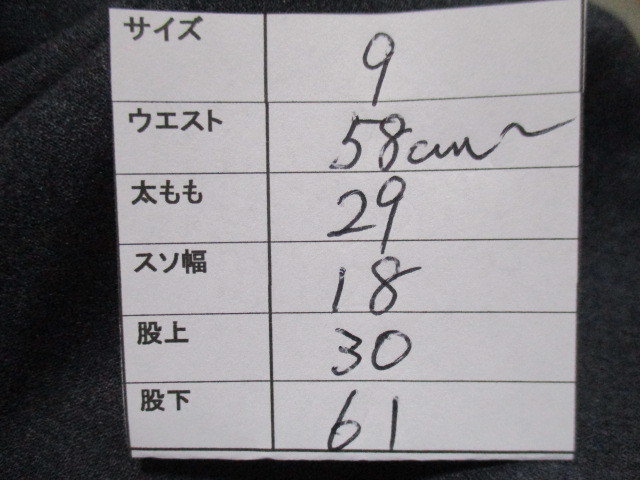 サイズ 9
ウエスト 58cm～
太もも 29
スソ幅 18
股上 30
股下 61